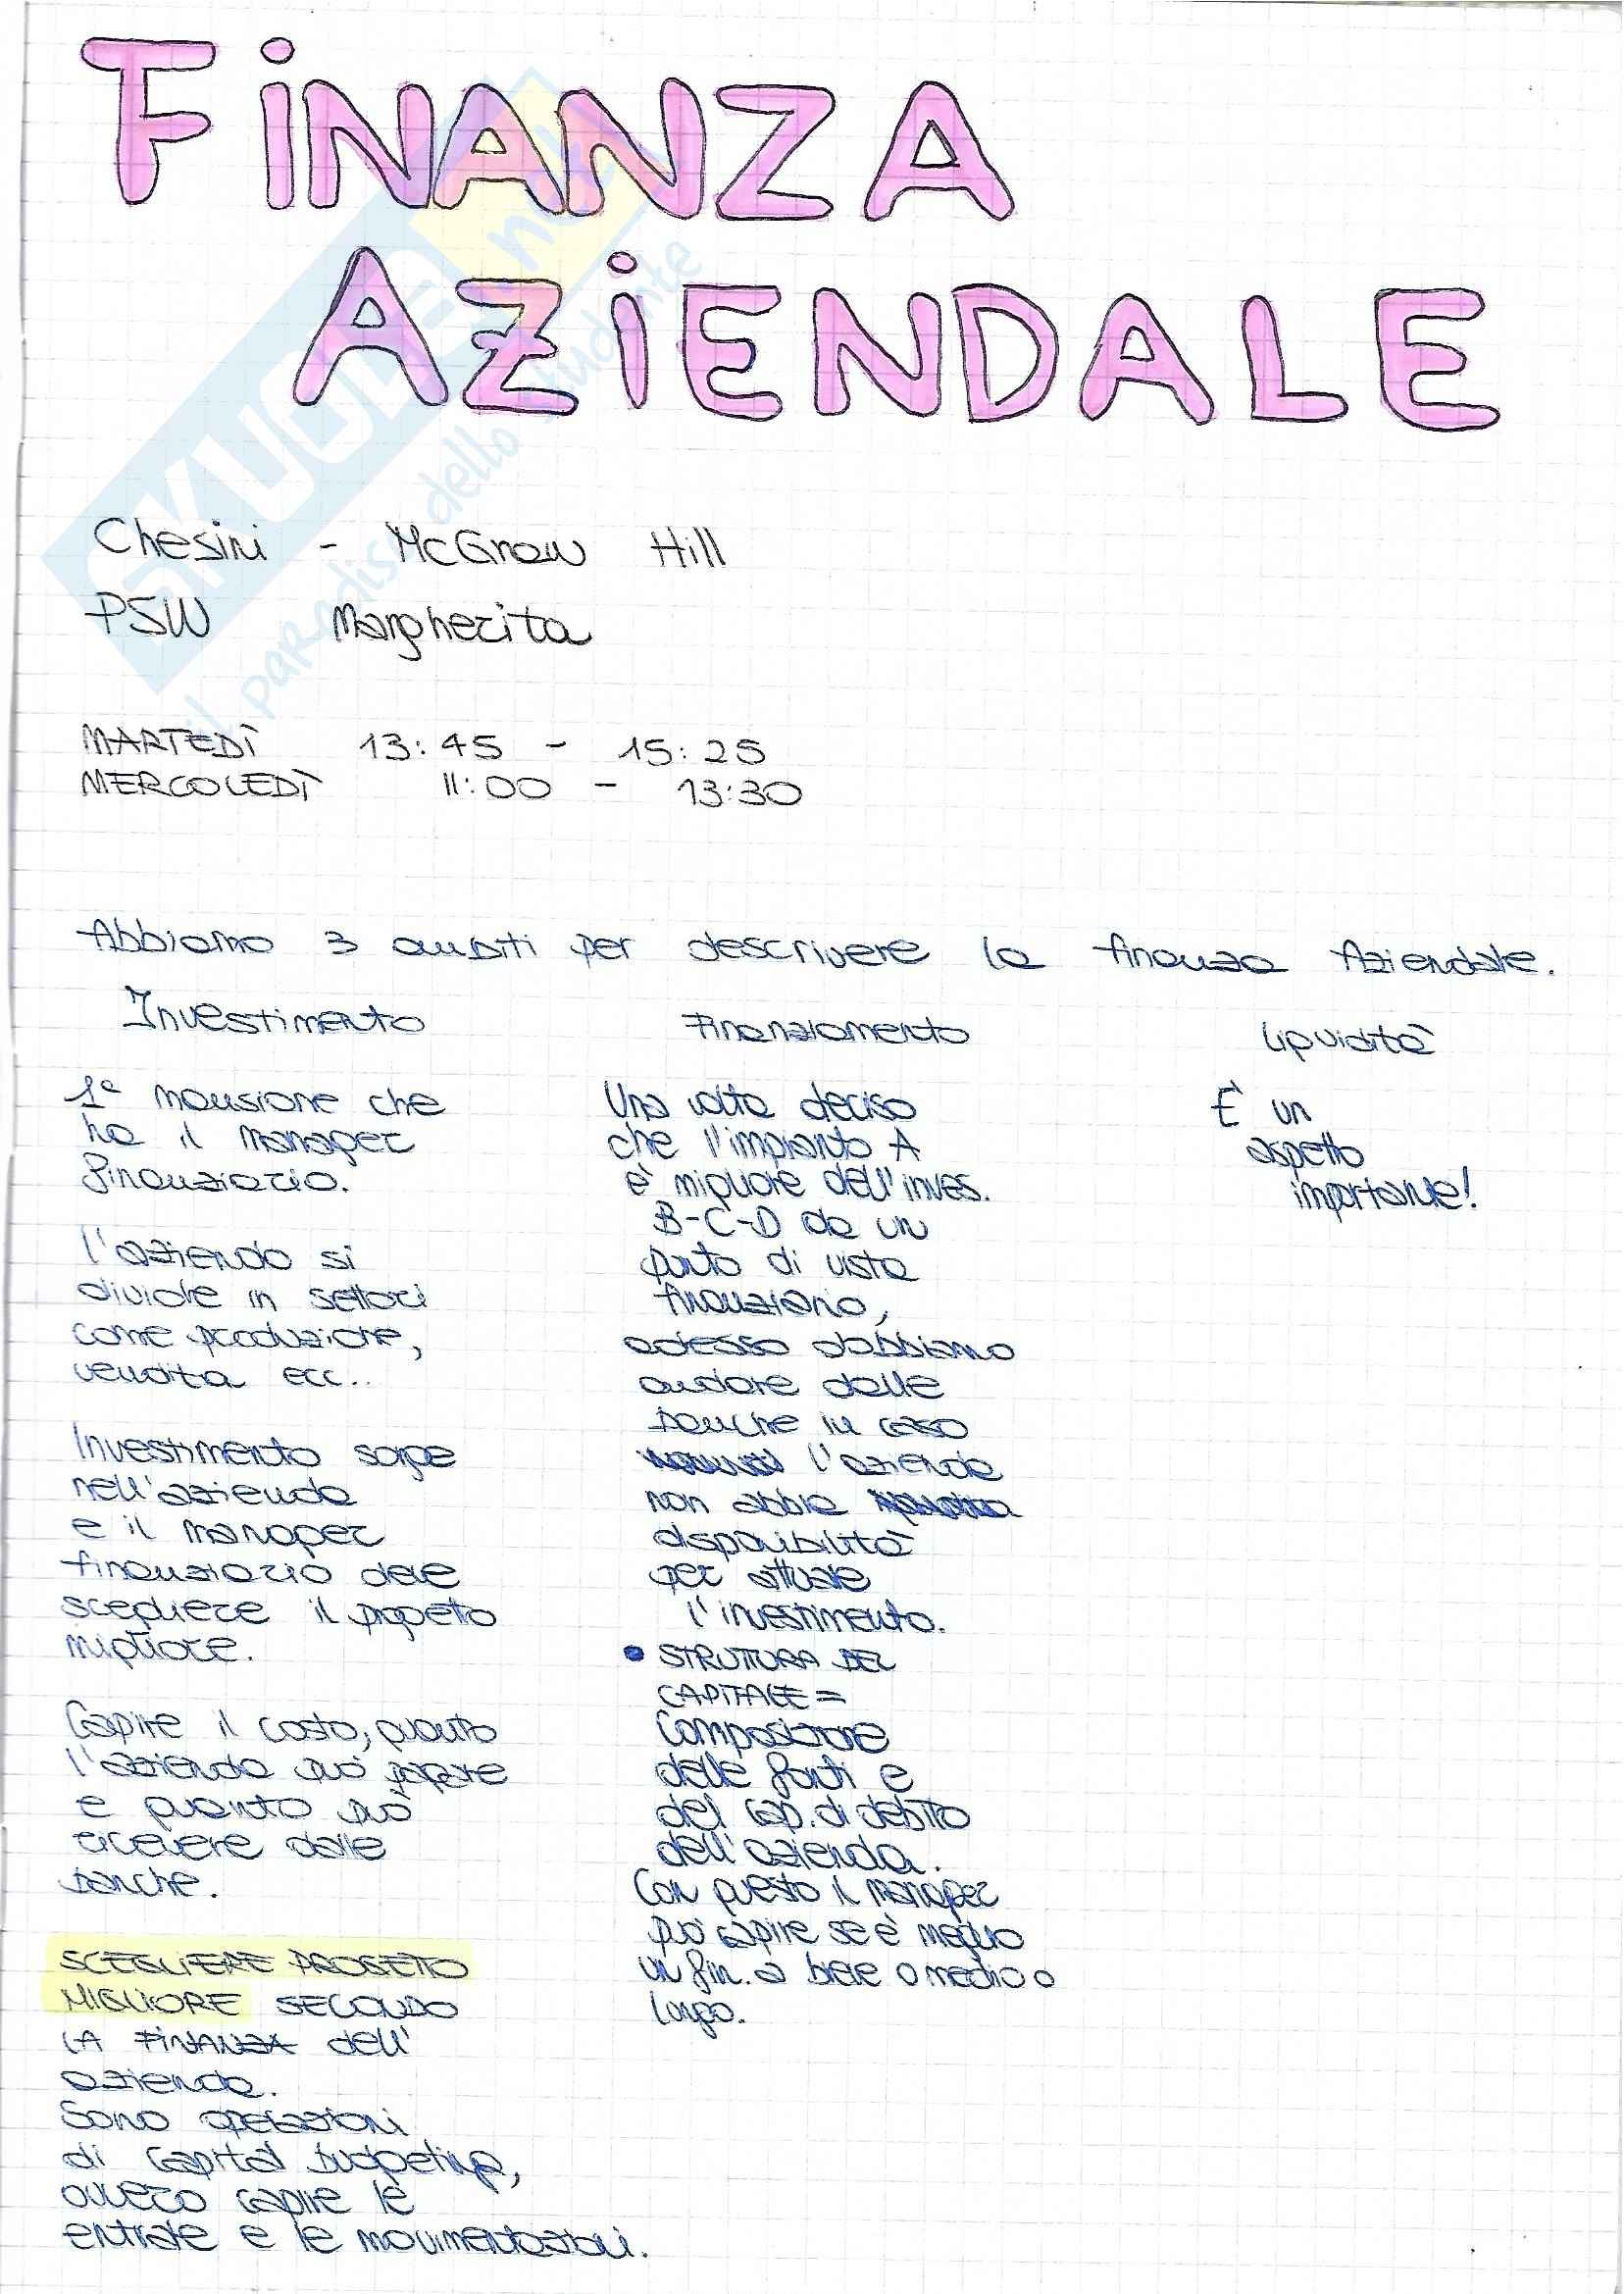 FINANZA
AZIENDALE
SKUOLA.net
il paradiso dello studente
Chesini - McGraw Hill
PSW Margherita
MARTEDÌ 13:45 - 15:25
MERCOLEDÌ 11:00 - 13:30
Abbiamo 3 ambiti per descrivere la finanza Aziendale.
Investimento
1ª mansione che
ha il manager
finanziario.
L'azienda si
divide in settori
come produzione,
vendita ecc..
Investimento sorge
nell'azienda
e il manager
finanziario deve
scegliere il progetto
migliore.
Capire il costo, quanto
l'azienda può pagare
e quanto può
ricevere dalle
banche.
SCEGLIERE PROGETTO
MIGLIORE SECONDO
LA FINANZA dell'
azienda.
Sono operazioni
di Capital budgeting,
ovvero capire le
entrate e le movimentazioni.
Finanziamento
Una volta deciso
che l'impianto A
è migliore dell'inves.
B-C-D da un
punto di vista
finanziario,
adesso dobbiamo
andare dalle
banche in caso
l'azienda
non abbia
disponibilità
per attuare
l'investimento.
• STRUTTURA DEL
CAPITALE =
Composizione
delle fonti e
del cap. di debito
dell'azienda.
Con questo il manager
può capire se è meglio
un fin. a breve o medio o
lungo.
Liquidità
È un
aspetto
importante!